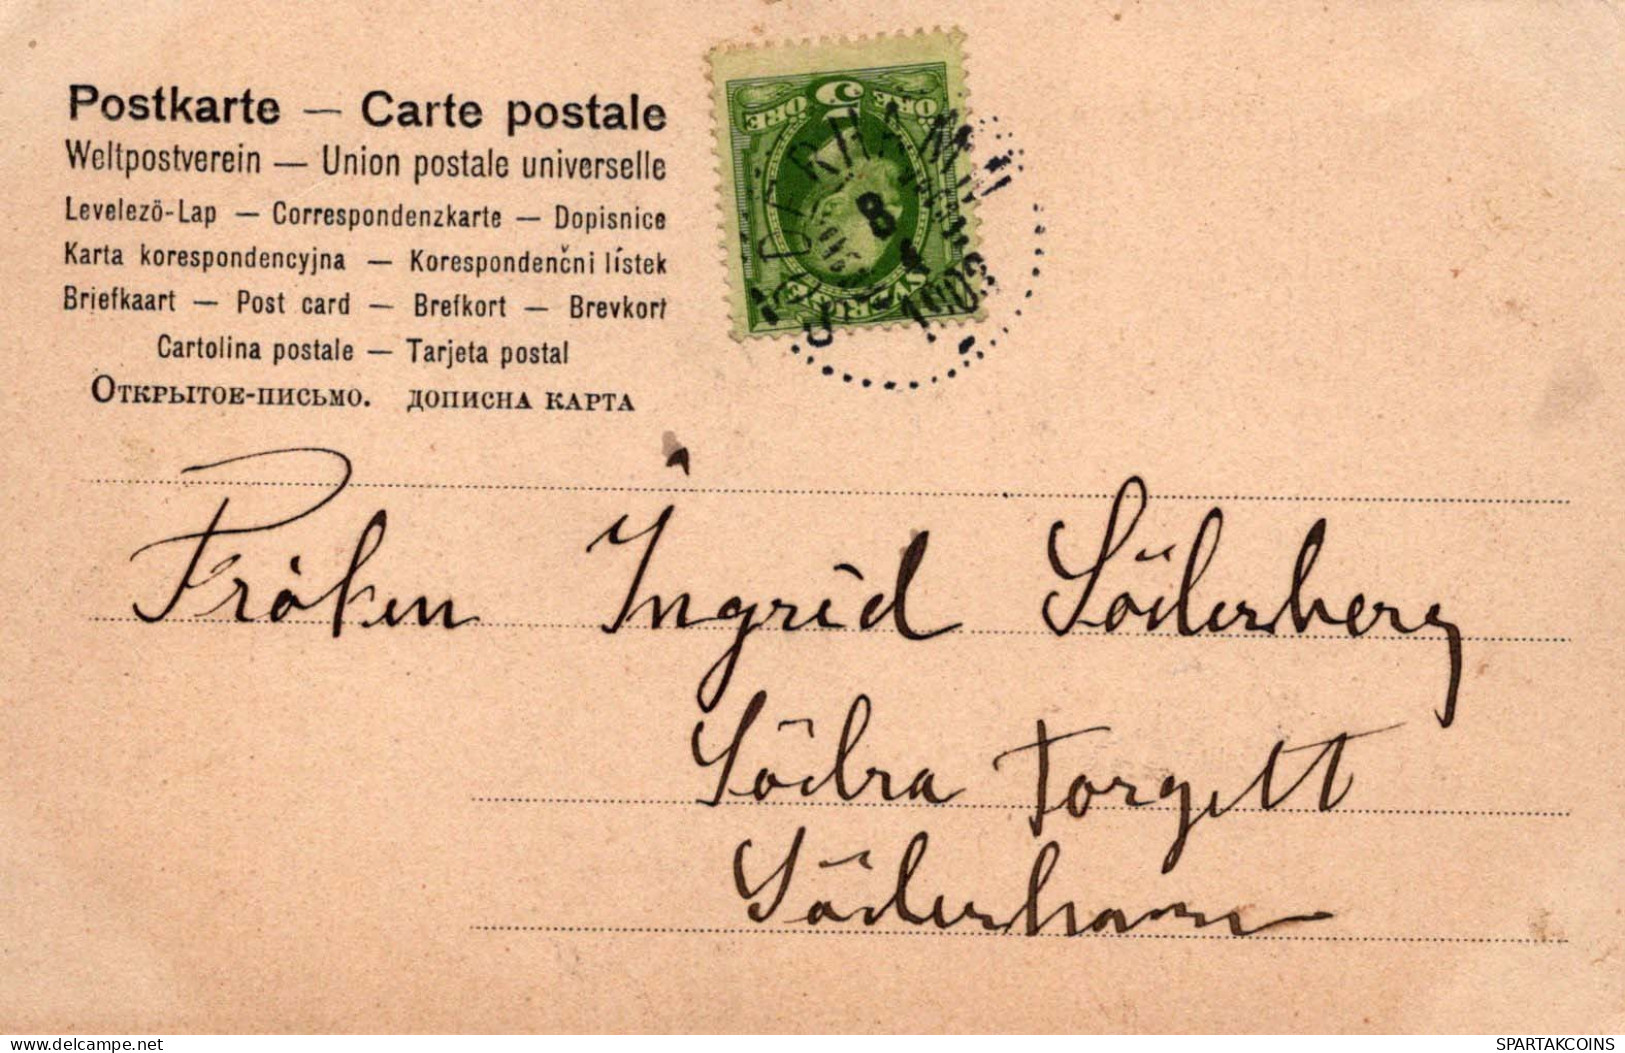 Postkarte — Carte postale
Weltpostverein — Union postale universelle
Levelezö-Lap — Correspondenzkarte — Dopisnice
Karta korespondencyjna — Korespondenčni lístek
Briefkaart — Post card — Brefkort — Brevkort
Cartolina postale — Tarjeta postal
Открытое-письмо. дописна карта
5
ÖRE ÖRE
SVERIGE
SÖDERHAMN
8
4
1903
Fröken Ingrid Söderberg
Södra Torgett
Söderhamn
SPARTAKCOINS
delcampe.net